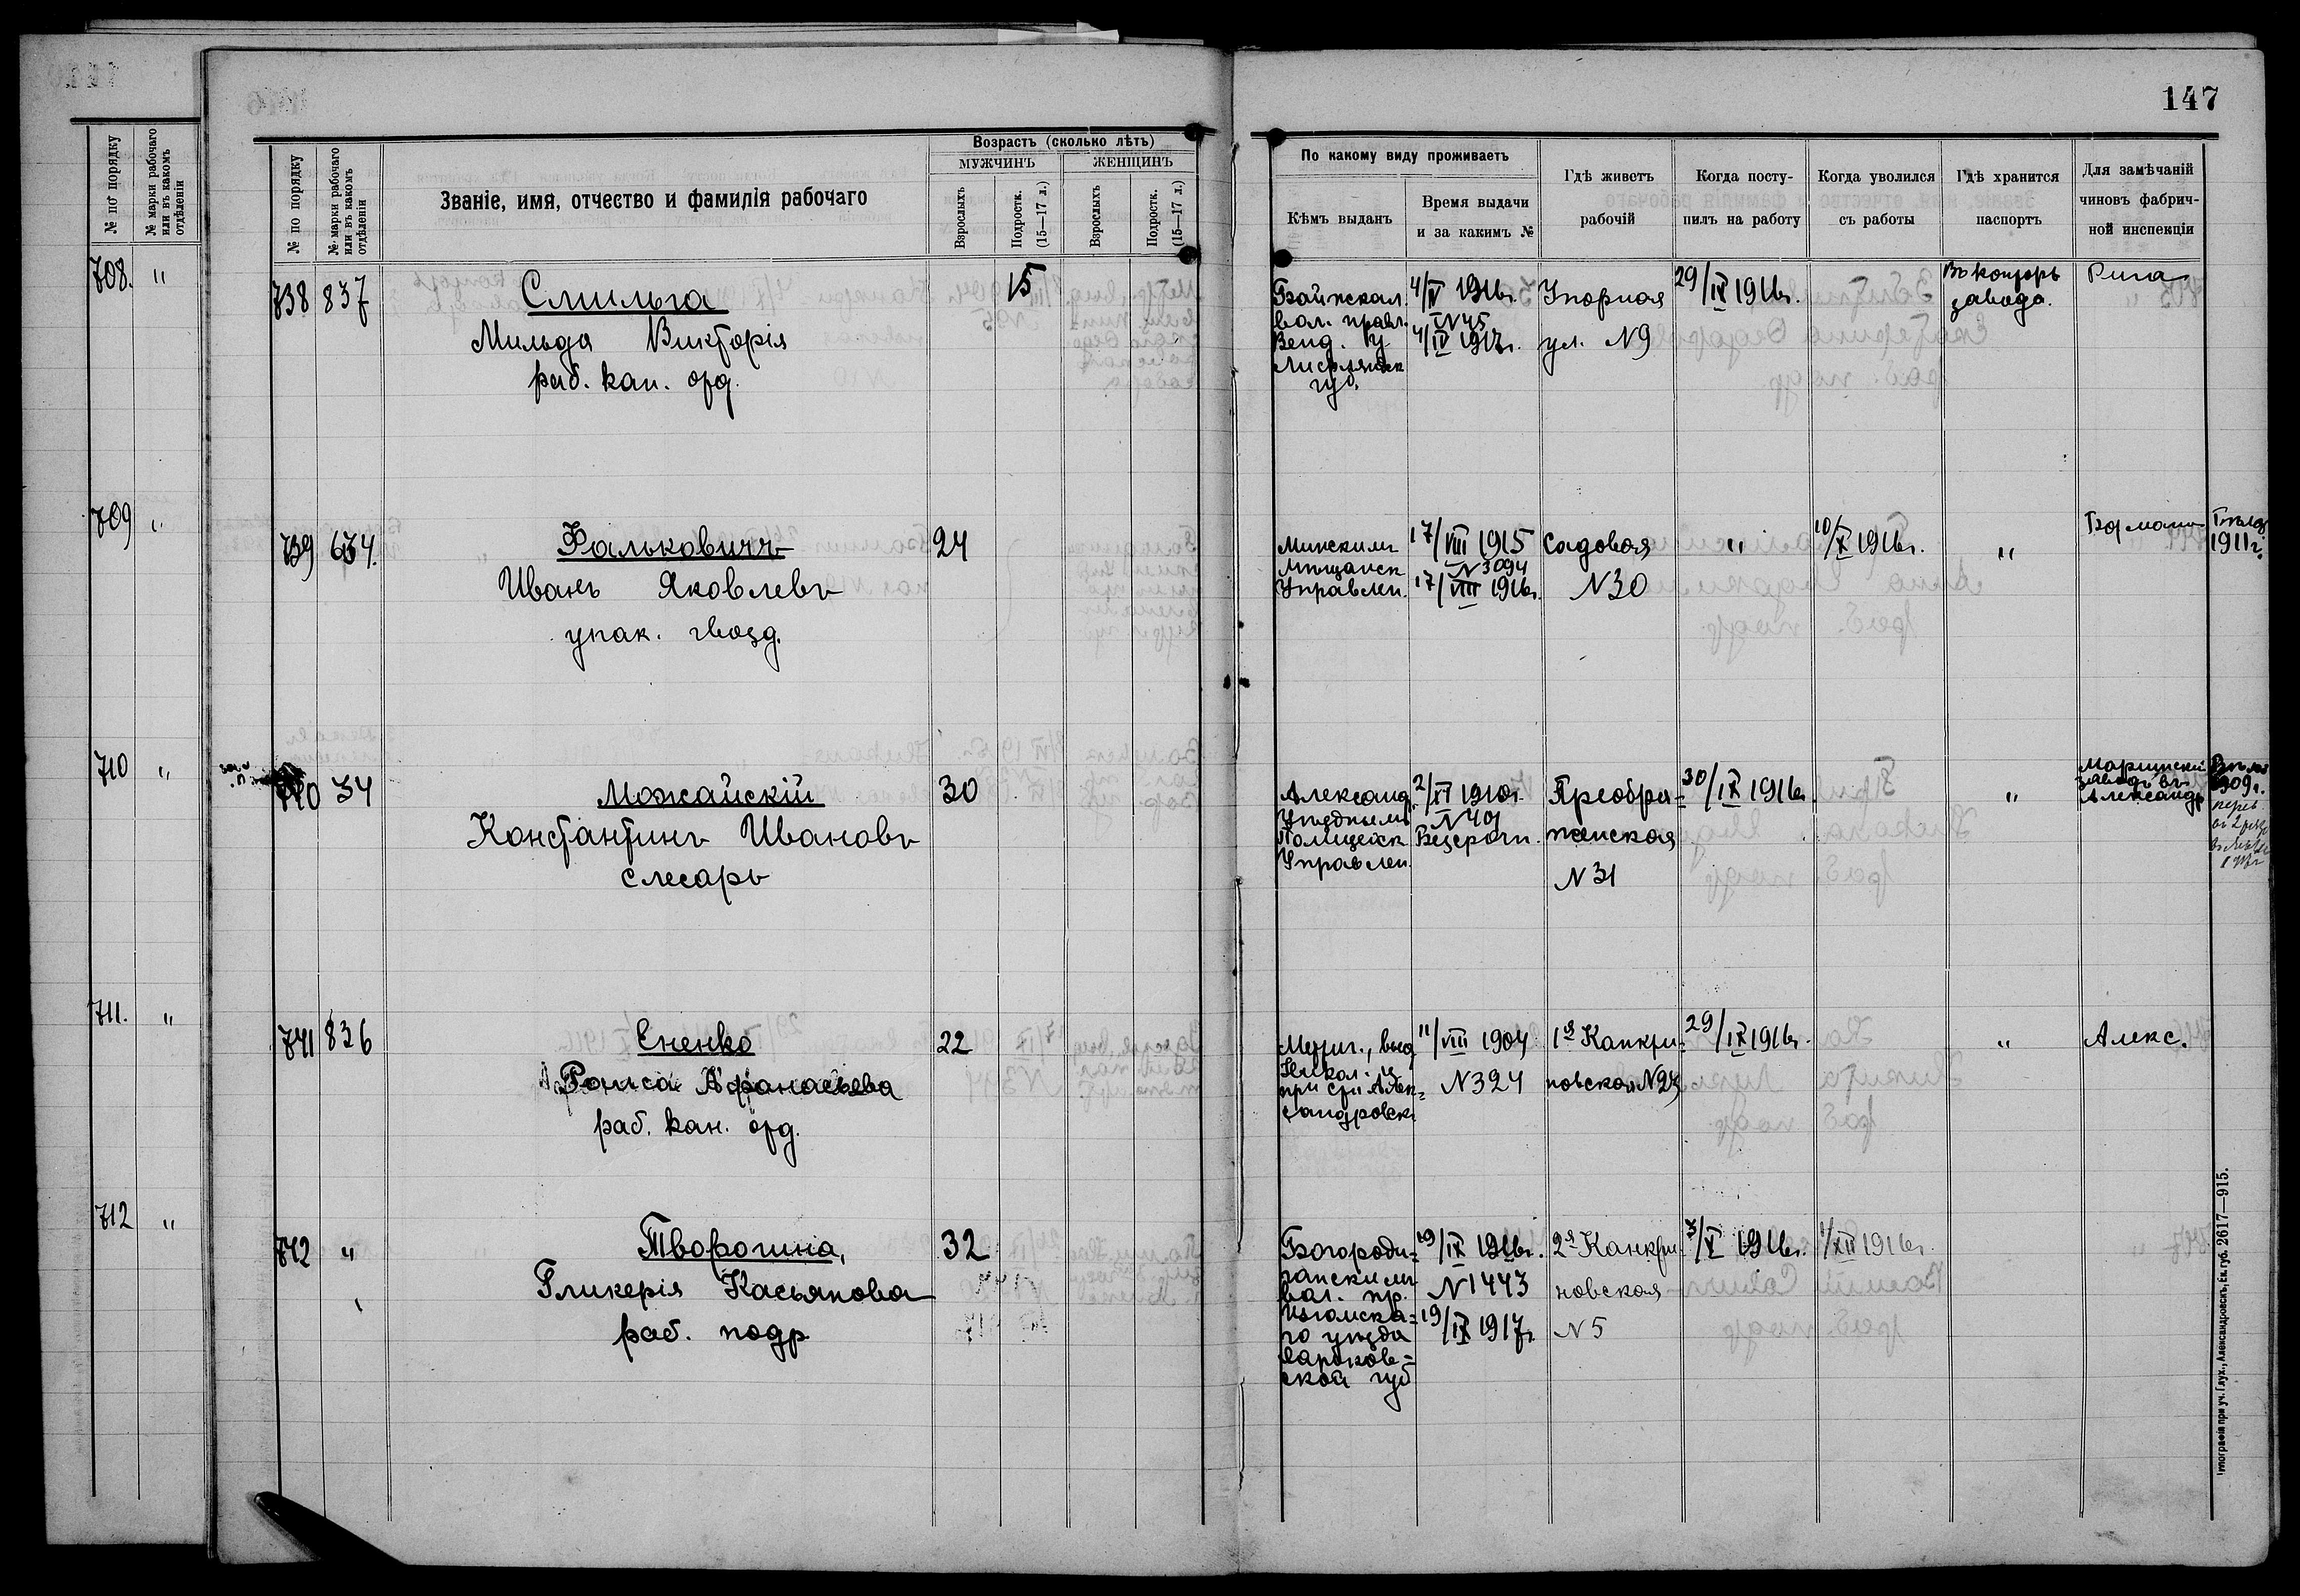 147
№ по порядку
№ марки рабочаго или въ какомъ отдѣленіи
708. "
709 "
710 "
711. "
712 "
№ по порядку
№ марки рабочаго или въ какомъ отдѣленіи
Званіе, имя, отчество и фамилія рабочаго
Возрастъ (сколько лѣтъ)
МУЖЧИНЪ
ЖЕНЩИНЪ
Взрослыхъ
Подростк. (15—17 л.)
Взрослыхъ
Подростк. (15—17 л.)
По какому виду проживаетъ
Кѣмъ выданъ
Время выдачи
и за какимъ №
Гдѣ живетъ
рабочій
Когда посту-
пилъ на работу
Когда уволился
съ работы
Гдѣ хранится
паспортъ
Для замѣчаній
чиновъ фабрич-
ной инспекціи
738 837
Смильга
Мильда Викторія
раб. кан. орд.
15
вол. правл.
Венд. у
Лифлянск
губ.
4/IV 1916г.
N 45
4/IV 1917г.
Упорная
ул. N9
29/IX 1916г.
Въ конторѣ
завода.
Рига
739 634.
Фальковичъ
Иванъ Яковлевъ
упак. гвозд.
24
Минскимъ
Мѣщанск
Управлен.
17/VIII 1915
N 3094
17/VIII 1916г.
Садовая
N30
"
10/X 1916г.
"
1911г.
740 34
Можайскій
Константинъ Ивановъ
слесарь
30
Александ.
Уѣзднымъ
Полицейск
Управлен.
2/XI 1910г.
N 401
Безсрочн.
Преобра-
женская
N 31
30/IX 1916г.
"
Маріинскій
заводъ въ
Александр
1909г.
741 836
Ененко
Раиса Афанасьева
раб. кан. орд.
22
Метрич., выд
Никол. ц
при ст. Алек-
сандровск.
11/VIII 1904
N324
1я Канкри-
новская N23
29/IX 1916г.
"
Алекс.
742 "
Творогина,
Гликерія Касьянова
раб. подр
32
Богороди-
чанскимъ
вол. пр.
Изюмска-
го уѣзда
Харьков-
ской губ
19/IX 1916г.
N1443
19/IX 1917г.
2я Канкри-
новская
N5
3/X 1916г.
1/XII 1916г.
Типографія при уч. Глух., Александровскъ, Ек. губ. 2617—915.